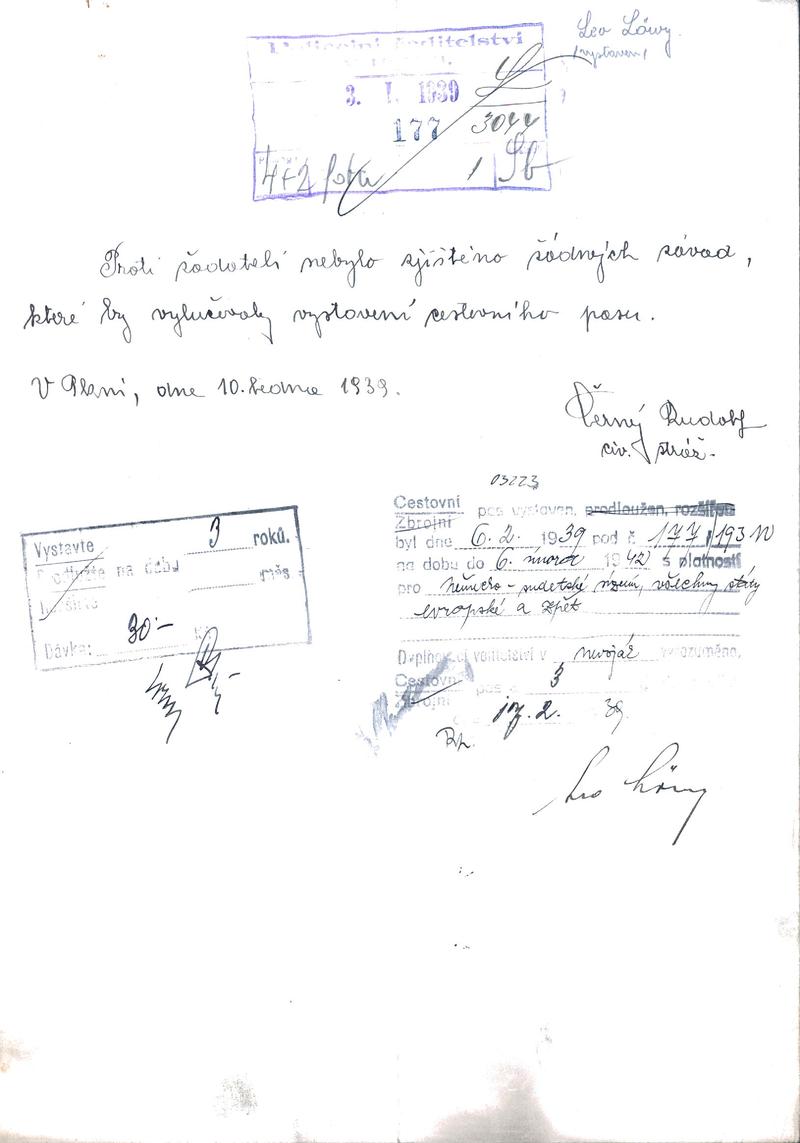 Leo Löwy
(vystaven)
Policejní ředitelství
3. I. 1939
177 3044
4+2 fota 1
Proti žadateli nebylo zjištěno žádných závad,
které by vylučovaly vystavení cestovního pasu.
V Plzni, dne 10. ledna 1939.
Černý Rudolf
civ. stráž.
03223
Vystavte 3 roků.
na dobu měs
Dávka: 30·-
Cestovní pas vystaven, prodloužen, rozšířen
Zbrojní
byl dne 6. 2. 1939 pod č 177/193 IV
na dobu do 6. února 1942 s platností
pro německo-sudetské území, všechny státy
evropské a zpět
Doplňovací velitelství v nevoják vyrozuměno.
Cestovní pas 3
Zbrojní
17. 2. 39.
Leo Löwy